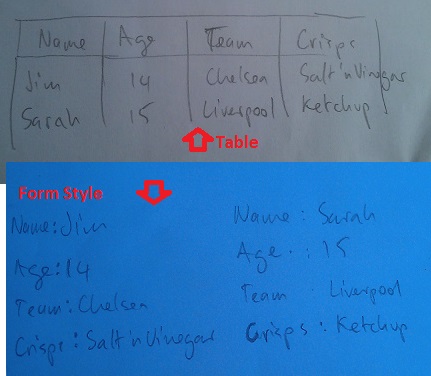 Name Age Team Crisps
Jim 14 Chelsea Salt'n Vinegar
Sarah 15 Liverpool Ketchup
Table
Form Style
Name: Jim
Age: 14
Team: Chelsea
Crisps: Salt'n Vinegar
Name: Sarah
Age: 15
Team Liverpool
Crisps: Ketchup